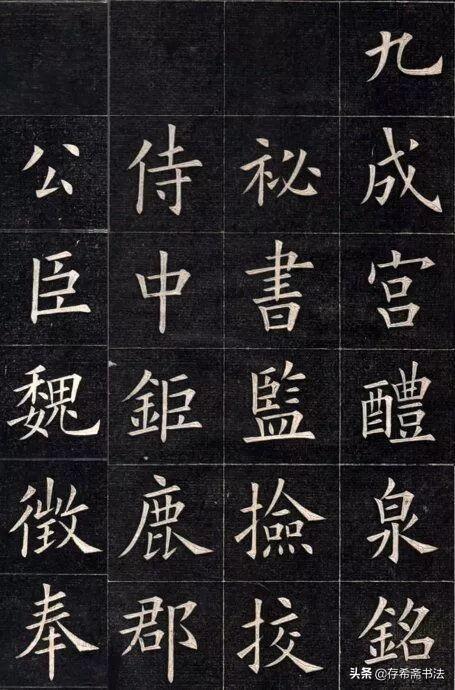 九成宫醴泉銘
祕書監撿挍
侍中鉅鹿郡
公臣魏徵奉
头条 @存希斋书法